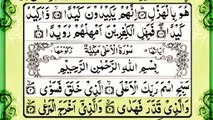 هُوَ بِالْهَزْلِ ۝ اِنَّهُمْ يَكِيْدُوْنَ كَيْدًا ۝ وَّاَكِيْدُ
كَيْدًا ۝ فَمَهِّلِ الْكٰفِرِيْنَ اَمْهِلْهُمْ رُوَيْدًا ۝
سُوْرَةُ الْاَعْلٰى مَكِّيَّةٌ
بِسْمِ اللّٰهِ الرَّحْمٰنِ الرَّحِيْمِ
سَبِّحِ اسْمَ رَبِّكَ الْاَعْلَى ۝ الَّذِيْ خَلَقَ فَسَوّٰى ۝
وَالَّذِيْ قَدَّرَ فَهَدٰى ۝ وَالَّذِيْ اَخْرَجَ الْمَرْعٰى ۝